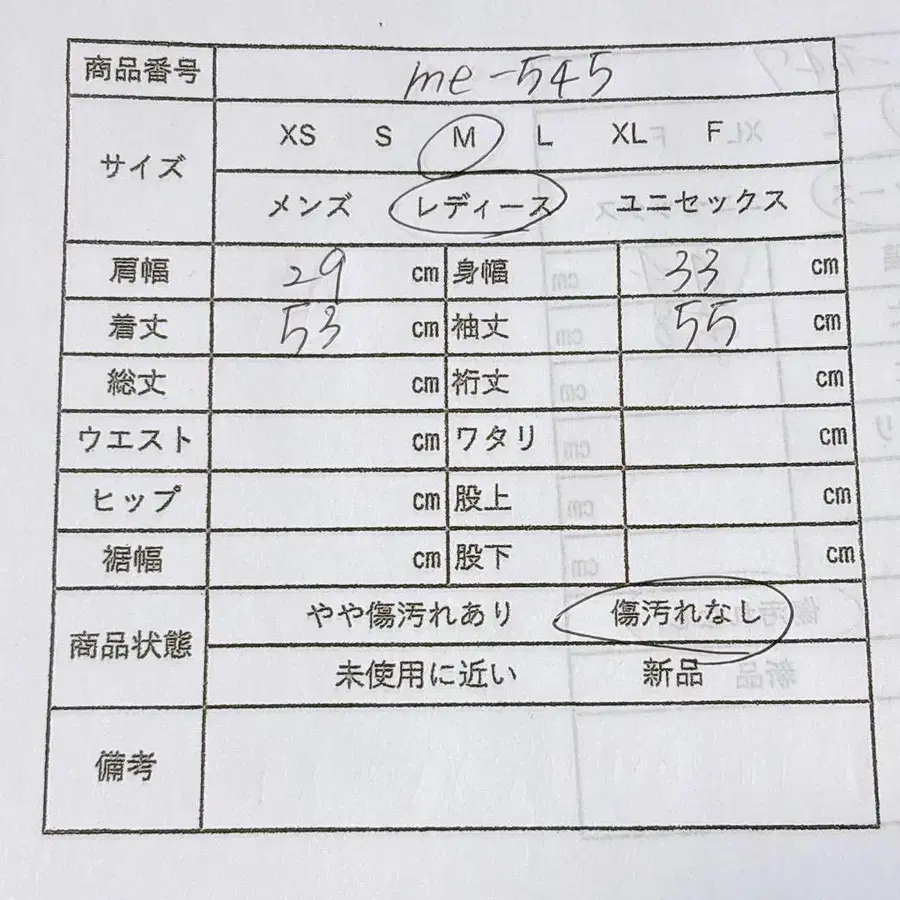 商品番号 me-545
サイズ XS S M L XL F
メンズ レディース ユニセックス
肩幅 29 cm 身幅 33 cm
着丈 53 cm 袖丈 55 cm
総丈 cm 裄丈 cm
ウエスト cm ワタリ cm
ヒップ cm 股上 cm
裾幅 cm 股下 cm
商品状態 やや傷汚れあり 傷汚れなし
未使用に近い 新品
備考